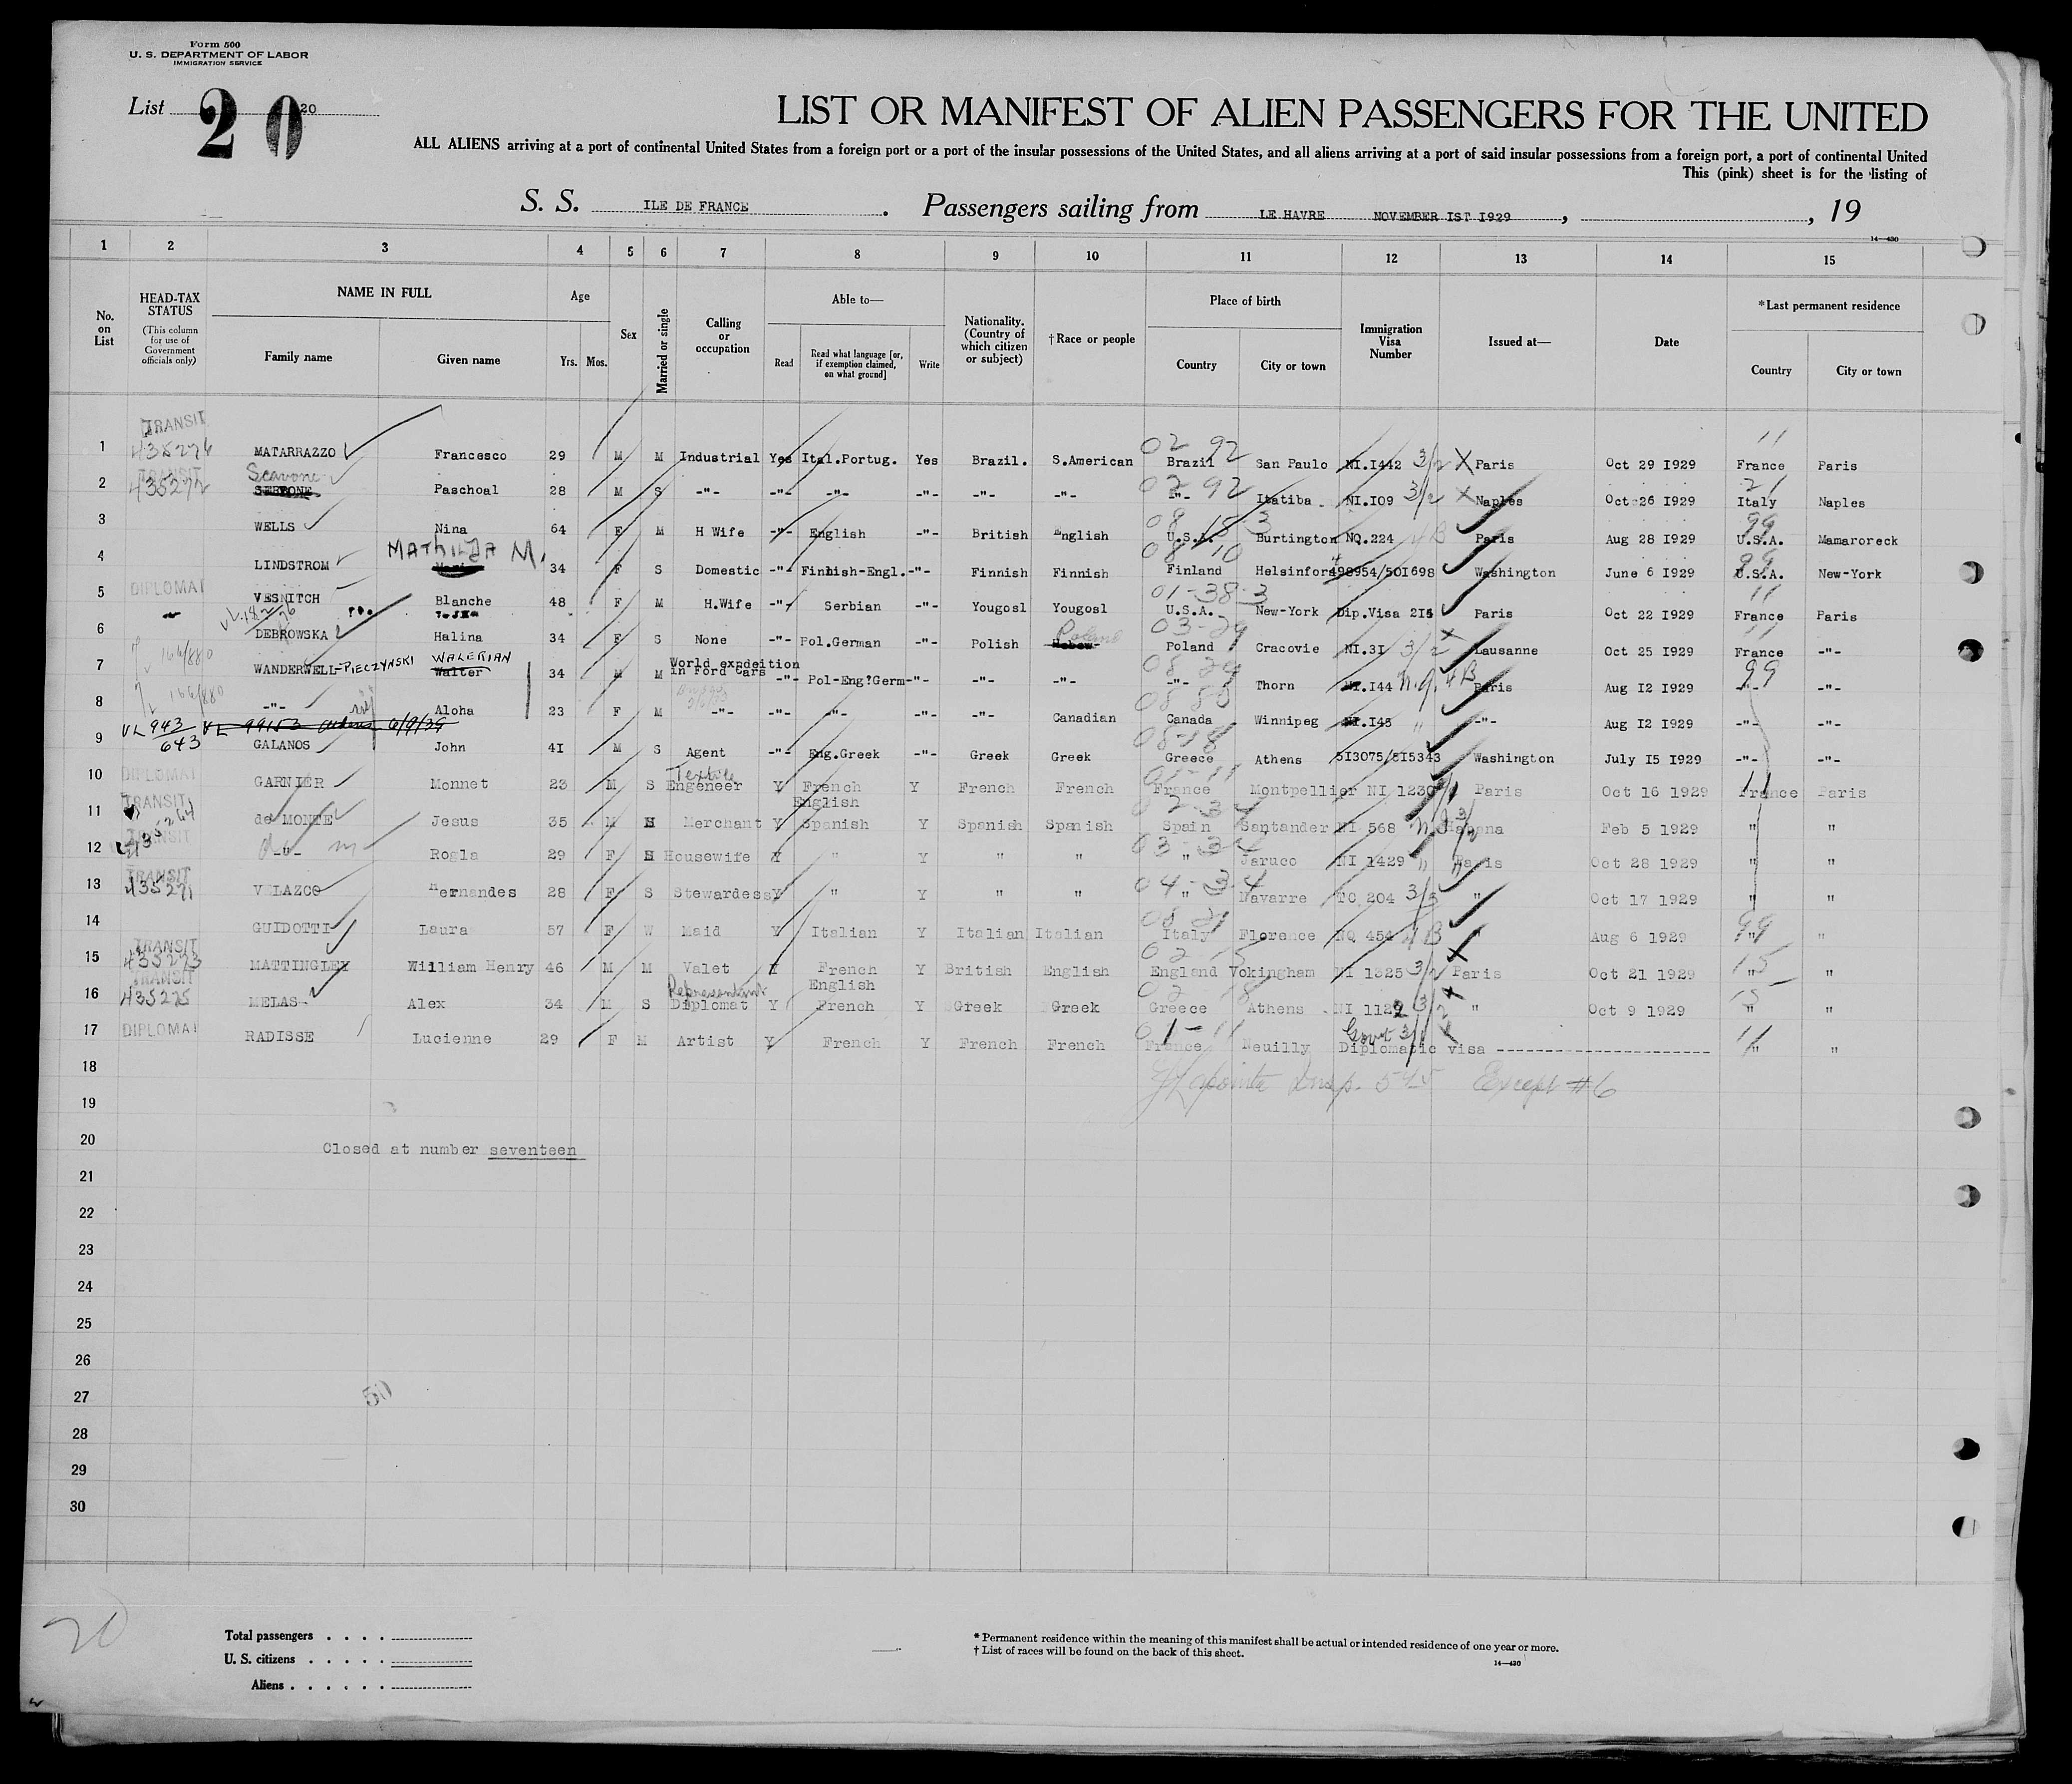 Form 500
U. S. DEPARTMENT OF LABOR
IMMIGRATION SERVICE
List 20 20
LIST OR MANIFEST OF ALIEN PASSENGERS FOR THE UNITED
ALL ALIENS arriving at a port of continental United States from a foreign port or a port of the insular possessions of the United States, and all aliens arriving at a port of said insular possessions from a foreign port, a port of continental United
This (pink) sheet is for the listing of
S. S. ILE DE FRANCE. Passengers sailing from LE HAVRE NOVEMBER IST I929, , 19
14—430
1 2 3 4 5 6 7 8 9 10 11 12 13 14 15
No. on List
HEAD-TAX STATUS (This column for use of Government officials only)
NAME IN FULL
Family name Given name
Age Yrs. Mos.
Sex
Married or single
Calling or occupation
Able to— Read Read what language [or, if exemption claimed, on what ground] Write
Nationality. (Country of which citizen or subject)
†Race or people
Place of birth Country City or town
Immigration Visa Number
Issued at—
Date
*Last permanent residence Country City or town
TRANSIT 02 92 11
1 435276 MATARRAZZO Francesco 29 M M Industrial Yes Ital.Portug. Yes Brazil. S.American Brazil San Paulo NI.I442 3/2 X Paris Oct 29 I929 France Paris
TRANSIT Scavone 02 92 21
2 435272 SERBONE Paschoal 28 M S -"- -"- -"- -"- -"- -"- -"- Itatiba NI.IO9 3/2 X Naples Oct 26 I929 Italy Naples
08 15 3 99
3 WELLS Nina 64 F M H Wife -"- English -"- British English U.S.A. Burtington NQ.224 4B Paris Aug 28 I929 U.S.A. Mamaroreck
MATHILDA M. 08 10 99
4 LINDSTROM 34 F S Domestic -"- Finnish-Engl.-"- Finnish Finnish Finland Helsinfors 498954/50I698 Washington June 6 I929 U.S.A. New-York
DIPLOMAT 01-38-3 11
5 VESNITCH Blanche 48 F M H.Wife -"- Serbian -"- Yougosl Yougosl U.S.A. New-York Dip.Visa 2I5 Paris Oct 22 I929 France Paris
03-29 Poland
6 DEBROWSKA Halina 34 F S None -"- Pol.German -"- Polish Hebew Poland Cracovie NI.3I 3/2 X Lausanne Oct 25 I929 France -"-
166/880 WALERIAN World expdeition in Ford Cars 08 29 99
7 WANDERWELL-PIECZYNSKI Walter 34 M M -"- Pol-Eng?Germ-"- -"- -"- -"- Thorn NI.I44 n.q. 4B Paris Aug 12 I929 -"- -"-
166/880
8 -"- Aloha 23 F M -"- -"- -"- -"- -"- Canadian Canada Winnipeg NI.I45 " -"- Aug 12 I929 -"- -"-
VL 943/643 VL 99153 6/9/39 08-18
9 GALANOS John 4I M S Agent -"- Eng.Greek -"- Greek Greek Greece Athens 5I3075/5I5343 Washington July I5 I929 -"- -"-
DIPLOMAT Textile 01-11
10 GARNIER Monnet 23 M S Engeneer Y French English Y French French France Montpellier NI 1230 Paris Oct 16 1929 France Paris
TRANSIT 02-34
11 de MONTE Jesus 35 M Merchant Y Spanish Y Spanish Spanish Spain Santander NI 568 Habana Feb 5 1929 " "
TRANSIT 03-34
12 -"- Rogla 29 F Housewife Y " Y " " " Jaruco NI 1429 " Paris Oct 28 1929 " "
TRANSIT 04-34
13 435271 VELAZCO Hernandes 28 F S Stewardess Y " Y " " " Navarre TC 204 3/5 " Oct 17 1929 " "
08 21 99
14 GUIDOTTI Laura 57 F W Maid Y Italian Y Italian Italian Italy Florence NQ 454 4B " Aug 6 1929 " "
TRANSIT 02 15 15
15 435273 MATTINGLEY William Henry 46 M M Valet Y French English Y British English England Wokingham NI 1325 3/2 X Paris Oct 21 1929 " "
TRANSIT Representant 02 18 15
16 435275 MELAS Alex 34 M S Diplomat Y French Y Greek Greek Greece Athens NI 1122 3/2 X " Oct 9 1929 " "
DIPLOMAT 01-11 Govt 3/1 11
17 RADISSE Lucienne 29 F M Artist Y French Y French French France Neuilly Diplomatic visa ---------------------- " "
18 Insp. 545 Except #6
19
20 Closed at number seventeen
21
22
23
24
25
26
27 50
28
29
30
20
Total passengers . . . .
U. S. citizens . . . . .
Aliens . . . . . .
* Permanent residence within the meaning of this manifest shall be actual or intended residence of one year or more.
† List of races will be found on the back of this sheet.
14—430